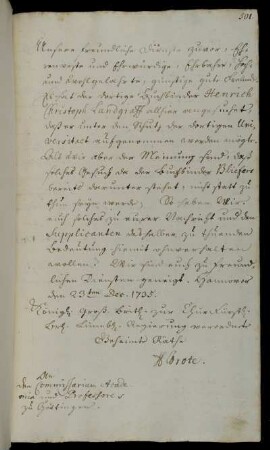 501.
Unsere freundliche Dienste zuvor, Ehr-
enveste und Ehrwürdige, Ehrbahre, Hoch-
und Wohlgelahrte, günstige gute Freunde,
Es hat der dortige Buchbinder Henrich
Christoph Landgraff allhier angesuchet,
daß er unter den Schutz der dortigen Uni-
versitaet aufgenommen werden möge.
Wie wir aber der Meinung sind, daß
solches Gesuch, da der Buchbinder Bliefers
bereits darunter stehet, nicht statt zu
thun seyn werde; So haben Wir
euch solches zu eurer Nachricht und dem
Supplicanten deshalber zu thuenden
Bedeutung hiemit ohnverhalten
wollen. Wir sind euch zu freund-
lichen Diensten geneigt. Hannover
den 23ten Dec. 1735.
Königl. Groß-Britt. zur Chur-Fürstl.
Br. Lüneb. Regierung verordnete
Geheimte Räthe
Grote.
An
den Commissarium Acade
miae und Professores
zu Göttingen.